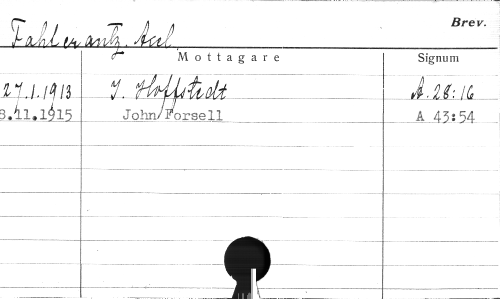 Brev.
Fahlcrantz, Axel
Mottagare Signum
27.1.1913 J. Hoffstedt A. 28:16
8.11.1915 John Forsell A 43:54